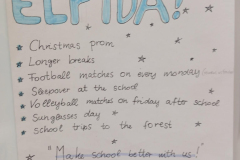 ELPIDA!
Christmas prom
Longer breaks
Football matches on every monday
Sleepover at the school
Volleyball matches on friday after school
Sunglasses day
school trips to the forest
"Make school better with us!"